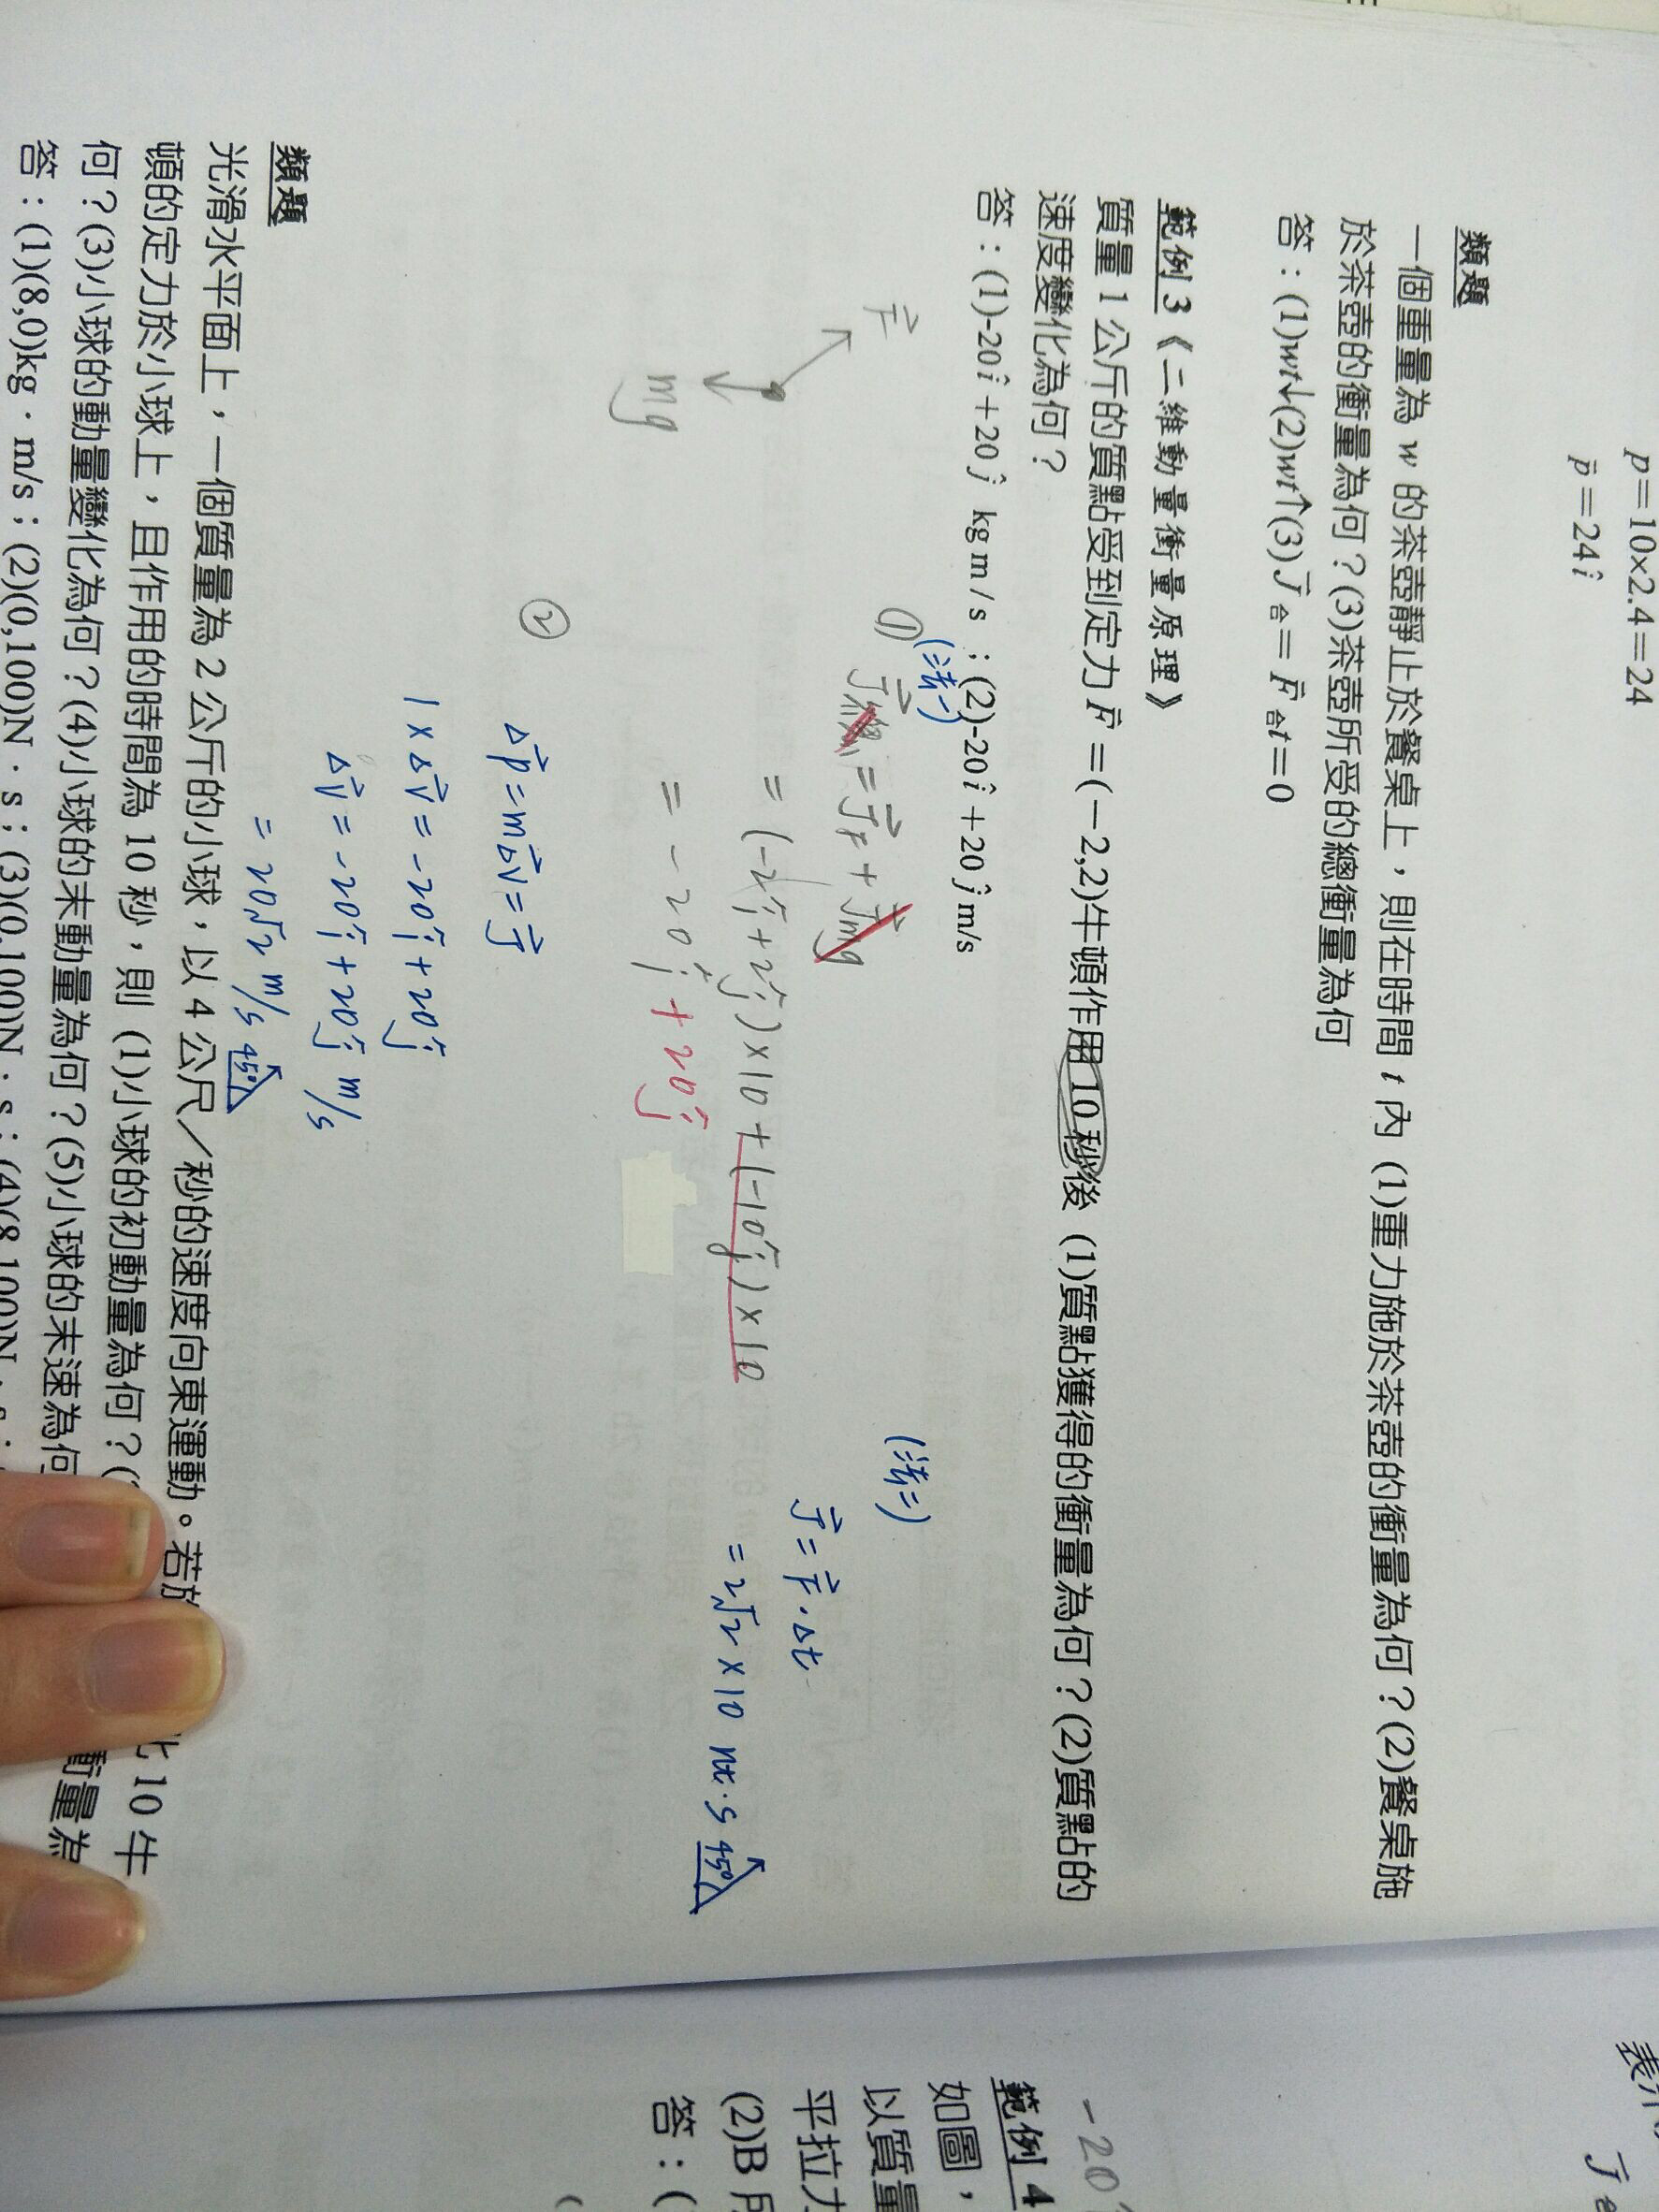 p=10×2.4=24
p⃗=24î
類題
一個重量為 w 的茶壺靜止於餐桌上，則在時間 t 內 (1)重力施於茶壺的衝量為何？(2)餐桌施
於茶壺的衝量為何？(3)茶壺所受的總衝量為何
答：(1)wt↓(2)wt↑(3)J⃗合=F⃗合t=0
範例 3《二維動量衝量原理》
質量 1 公斤的質點受到定力 F⃗=(−2,2)牛頓作用10 秒後 (1)質點獲得的衝量為何？(2)質點的
速度變化為何？
答：(1)-20î+20ĵ kg m/s；(2)-20î+20ĵ m/s
F⃗
mg
① (法一)
= J⃗F + J⃗mg
= (-2î+2ĵ)×10 + (-10ĵ)×10
= -20î + 20ĵ
(法二)
J⃗=F⃗·Δt
= 2√2 × 10 nt·s 45°
②
Δp⃗=mΔv⃗=J⃗
1×Δv⃗ = -20î+20ĵ
Δv⃗ = -20î+20ĵ m/s
= 20√2 m/s 45°
類題
光滑水平面上，一個質量為 2 公斤的小球，以 4 公尺／秒的速度向東運動。若於
頓的定力於小球上，且作用的時間為 10 秒，則 (1)小球的初動量為何？(
北 10 牛
何？(3)小球的動量變化為何？(4)小球的末動量為何？(5)小球的末速為何
衝量為
答：(1)(8,0)kg．m/s；(2)(0,100)N．s；(3)(0,100)N．s；(4)(8,100)N．
-20
範例 4
如圖，
以質量
平拉力
(2)B 所
答：(